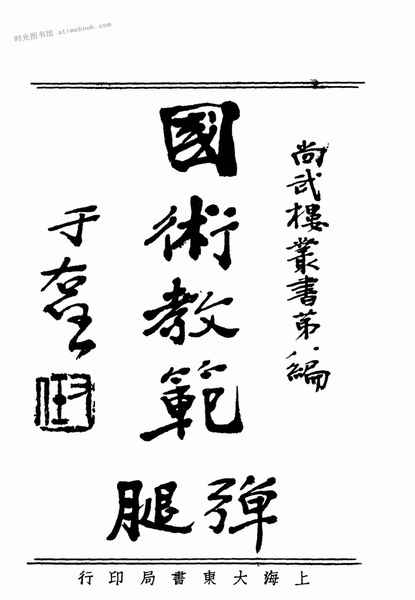 时光图书馆 atimebook.com
尚武樓叢書第八編
國術教範
彈腿
于右任
上海大東書局印行